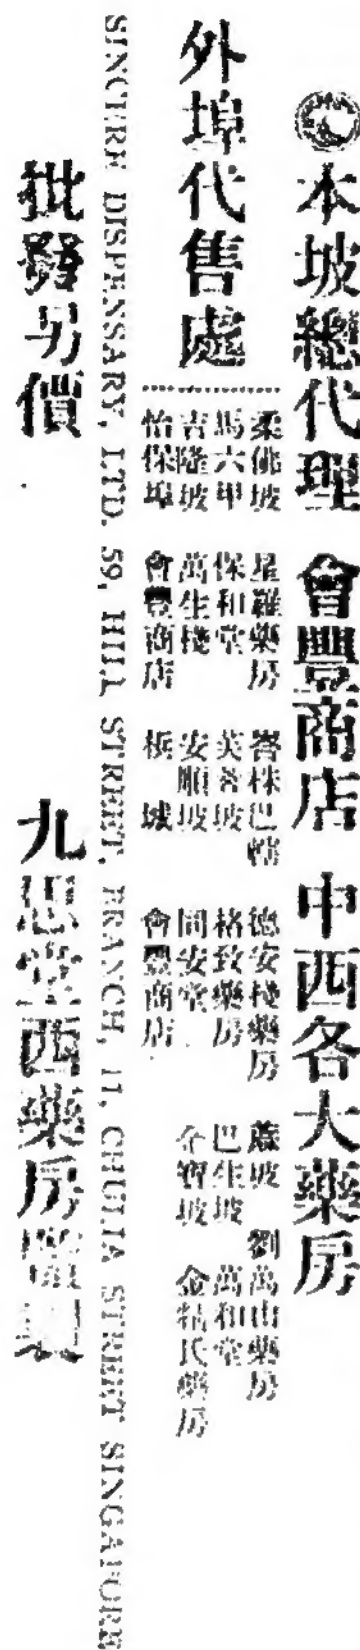 本坡總代理 會豐商店 中西各大藥房
外埠代售處
柔佛坡 星羅藥房 峇株巴轄 德安棧藥房 蔴坡 劉萬山藥房
馬六甲 保和堂 芙蓉坡 格致藥房 巴生坡 萬和堂
吉隆坡 萬生棧 安順坡 同安堂 金寶坡 金特氏藥房
怡保埠 會豐商店 檳城 會豐商店
SINCERE DISPENSSARY, LTD. 59, HILL STREET, BRANCH, 11, CHULIA STREET SINGAPORE
批發另價 九思堂西藥房監製